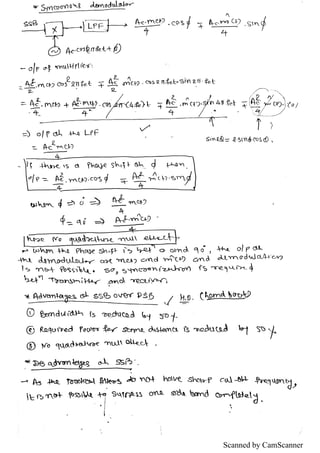 * Synchronous demodulator
SSB → X → LPF → Ac.m(t)/4 .cosφ ∓ Ac.m̂(t)/4 .sinφ
Ac cos(2πfct+φ)
- o/p of multiplier:
= Ac²/2 .m(t) cos²2πfct ∓ Ac²/2 .m̂(t).cos2πfct.sin2πfct
⇒ o/p of the LPF
= Ac²m(t)/4
sin2θ = 2sinθcosθ.
- If there is a Phase shift of φ then
o/p = Ac²/4 .m(t).cosφ ∓ Ac²/4 m̂(t).sinφ
when φ = 0 ⇒ Ac²m(t)/4
φ = 90 ⇒ Ac²m̂(t)/4
here No quadrature null effect -
- when the Phase shift is betⁿ 0 and 90, the o/p of
the demodulator are m(t) and m̂(t) and demodulation
is not Possible. so, synchronization is required
betⁿ Transmitter and receiver.
* Advantages of SSB over DSB H.S.
① Bandwidth is reduced by 50%.
② Required Power for same distance is reduced by 50%.
③ No quadrature null effect.
* Disadvantages of SSB:
- As the Practical filters do not have sharp cut-off frequency,
it is not possible to suppress one side band completely.
Scanned by CamScanner